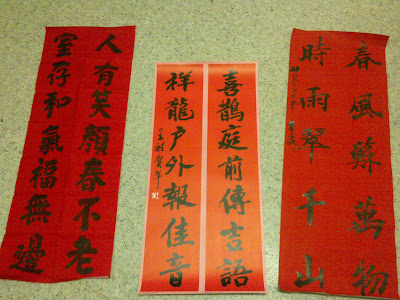 春風蘇萬物
時雨翠千山
喜鵲庭前傳吉語
祥龍户外報佳音
賀年
人有笑顏春不老
室存和氣福無邊